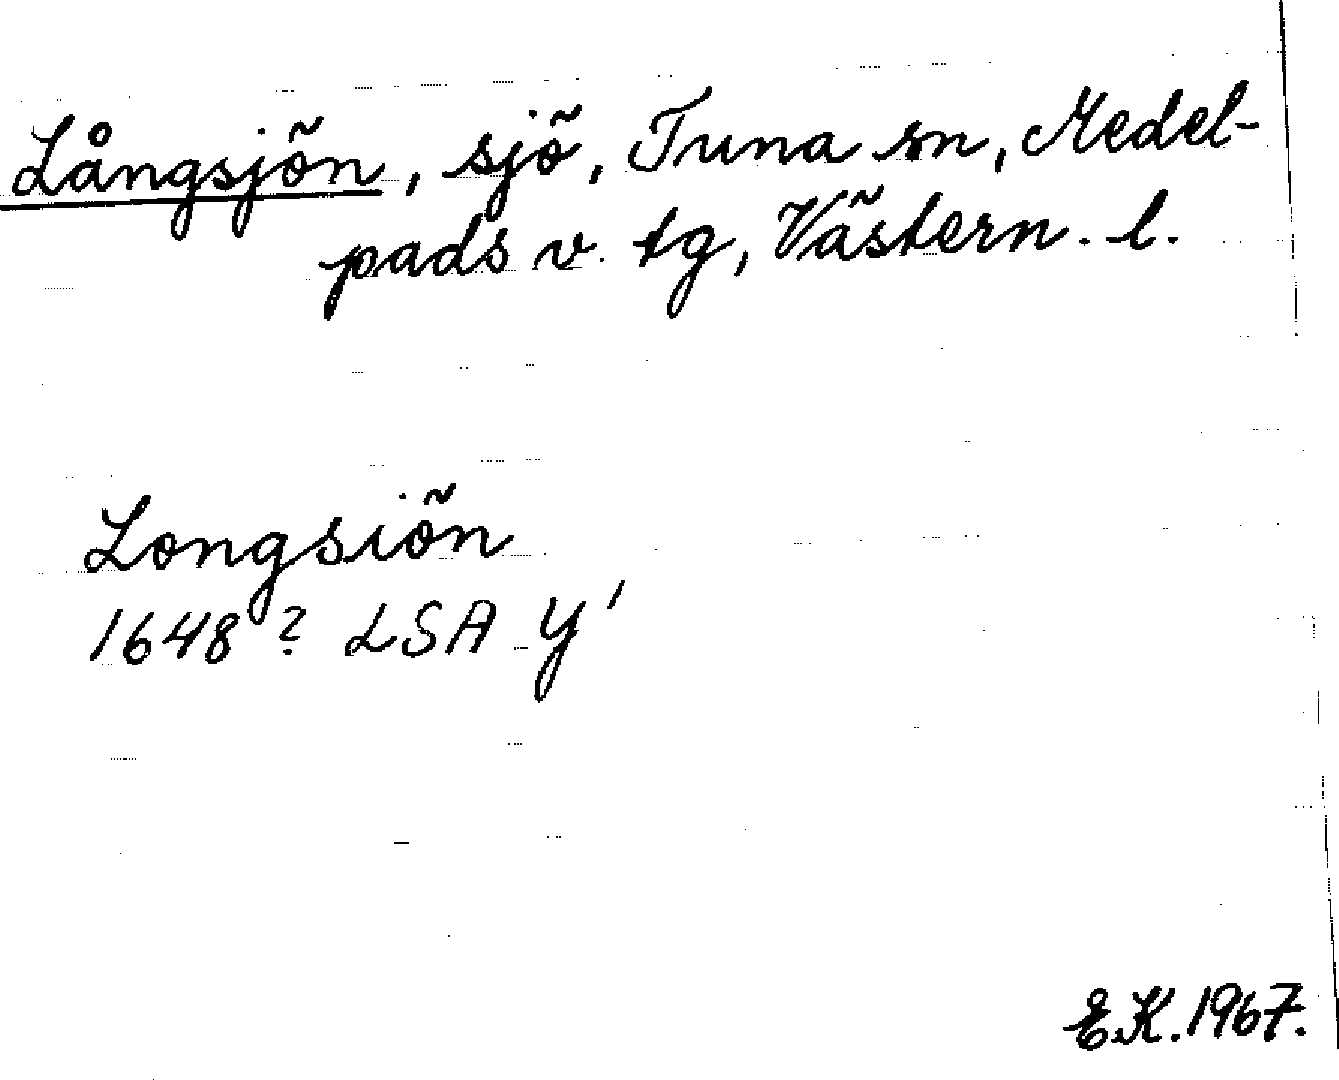 Långsjön, sjö, Tuna sn, Medel-
pads v. tg, Västern. l.
Longsiön
1648? LSA Y'
E.K. 1967.